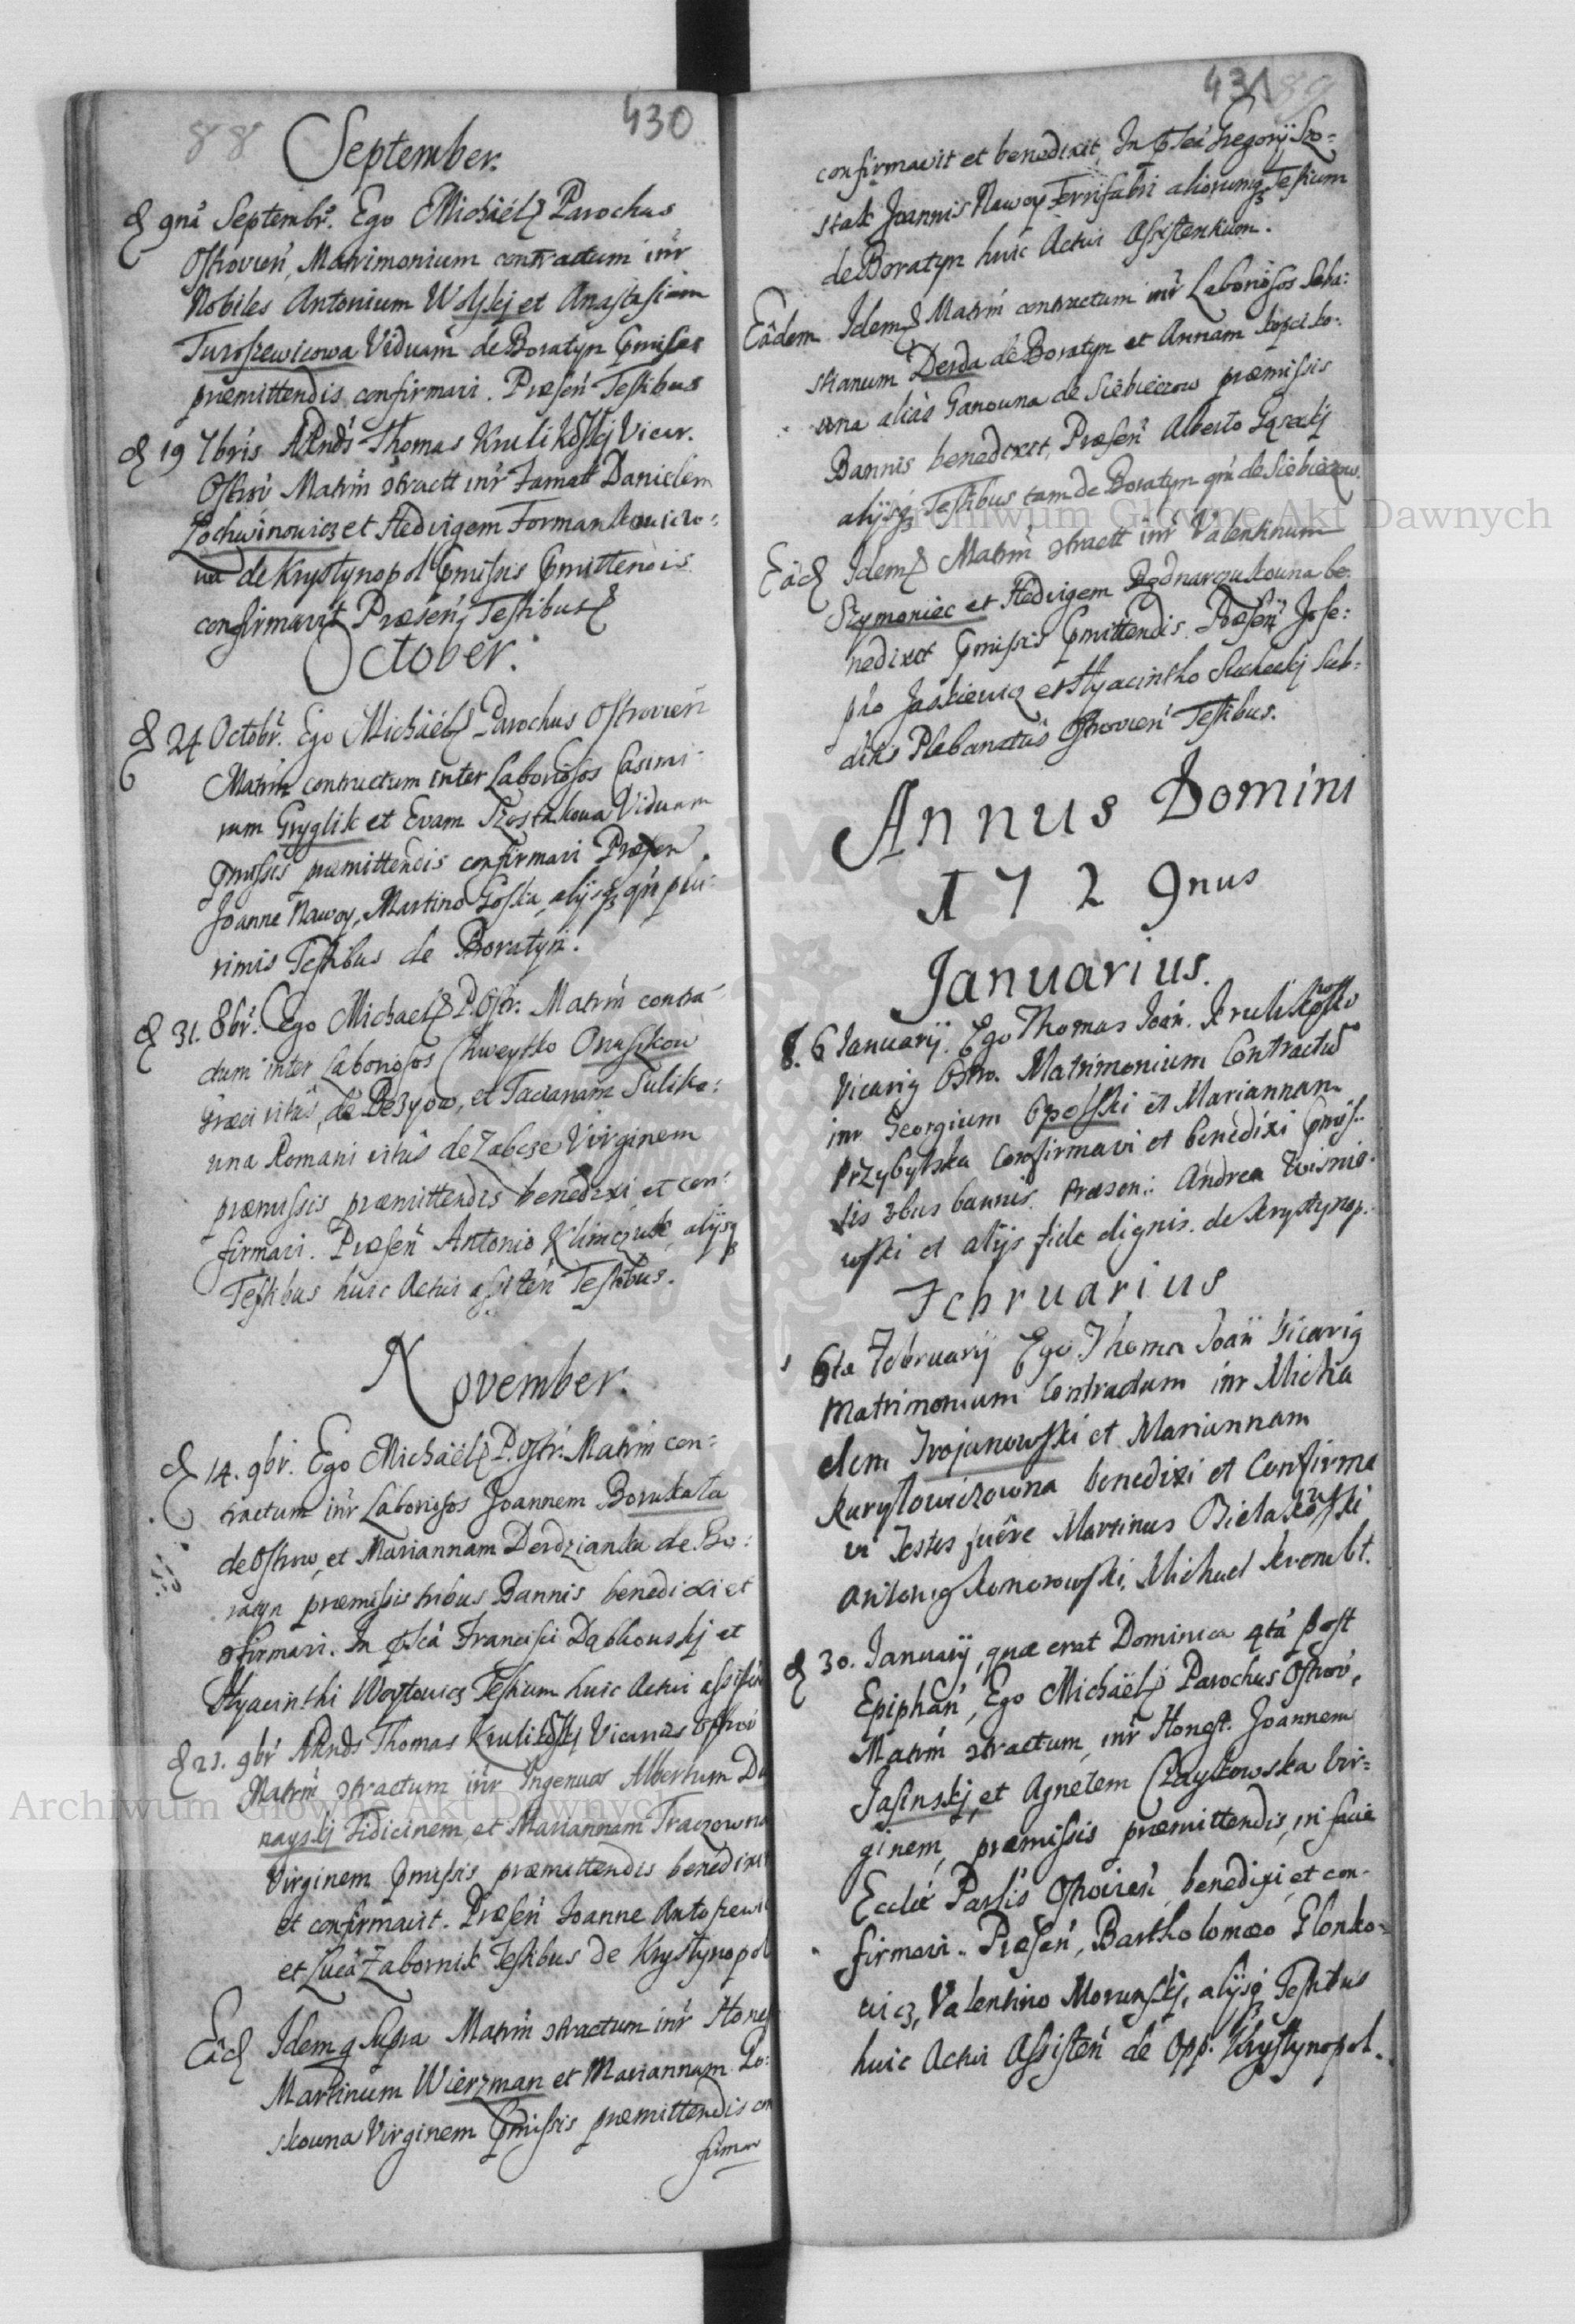 88
430
September.
9na Septembr. Ego Michaël Parochus
Ostrovien, Matrimonium contractum intr
Nobiles Antonium Wolskj et Anastasiam
Turoszewicowa Viduam de Boratyn
præmittendis confirmavi. Præsen Testibus
19 7bris Thomas Krulikoskj Vicar.
Ostrov Matrm intr Famatt Danielem
Lochwinowicz et Hedvigem Formankowiczo:
na de Krystynopol
confirmavit Præsen, Testibus
October.
24 Octobr. Ego Michaël Parochus Ostrovien
Matrm contractum inter Laboriosos Casimi:
rum Gryglik et Evam Szostakowa Viduam
præmittendis confirmavi Præsen
Joanne Nawoy, Martino alijsq qm plu:
rimis Testibus de Boratyn.
31. 8br. Ego Michael P. Ostr. Matrm contra:
ctum inter Laboriosos Chweyko Onaszkow
Græci ritûs, de et Tacianam Suliko:
una Romani ritûs de Zabcze Virginem
præmissis præmittendis benedixi et con:
firmavi. Præsen Antonio Klimczuk, alijsq
Testibus huic Actui assisten Testibus.
November.
14. 9br. Ego Michaël P. Ostr. Matrm con:
tractum intr Laboriosos Joannem Borukata
de Ostrow, et Mariannam Derdzianka de Bo:
ratyn præmissis tribus Bannis benedixi et
firmavi. In Francisci Dąbkouskj et
Hyacinthi Woytowicz Testium huic Actui assisten
21. 9br Thomas Krulikoskj Vicarius Ostrov
Matrm intr Ingenuos Albertum Du
nayskj Fidicinem, et Mariannam Traczowna
Virginem præmittendis benedixit
et confirmavit. Præsen Joanne
et Lucâ Zabornik Testibus de Krystynopol
Eâd Idem q supra Matrm intr Hones
Martinum Wierzman et Mariannam Lo:
skouna Virginem præmittendis con
firma
431
89
confirmavit et benedixit, In Gregorij Szo:
stak Joannis Nawoy Ferrifabri aliorumq Testium
de Boratyn huic Actui Assistentium.
Eâdem Idem Matrm contractum intr Laboriosos Seba:
stianum Derda de Boratyn et Annam
una aliàs Panouna de Siebieczow præmissis
Bannis benedixit, Præsen Alberto
alijsq Testibus tam de Boratyn qm de Siebieczow.
Eâd Idem Matrm intr Valentinum
Szymoniec et Hedvigem Bednarczukouna be:
nedixit Præsen Jose:
pho Jaskiewicz et Hyacintho Sucheckj Sub:
ditis Plebanatûs Ostrovien Testibus.
Annus Domini
1729nus
Januarius.
6 Januarij. Ego Thomas Joan. Krulikosko
Vicarig Ostro. Matrimonium Contractu
intr Georgium Opolski et Mariannam
Przybylska Confirmavi et benedixi
sis 3bus bannis. Præsen: Andrea Wisnio:
wski et alijs fide dignis. de Krystynop.
Februarius
6ta Februarij Ego Thoma Joan Vicarig
Matrimonium Contractum intr Micha
elem Trojanowski et Mariannam
Kurylowiczowna benedixi et Confirma
vi Testes fuêre Martinus
Antonig Michael
30. Januarij, quæ erat Dominica 4tâ post
Epiphan, Ego Michaël Parochus Ostrov,
Matrm intr Honest. Joannem
Jasinskj, et Agnetem Czaykowska Vir:
ginem, præmissis præmittendis, in facie
Eccliæ Parlis Ostrovien, benedixi, et con:
firmavi. Præsen, Bartholomæo Glonko:
wicz, Valentino Morunskj, alijsq Testibus
huic Actui Assisten de Opp. Krystynopol.
Archiwum Główne Akt Dawnych
Archiwum Główne Akt Dawnych